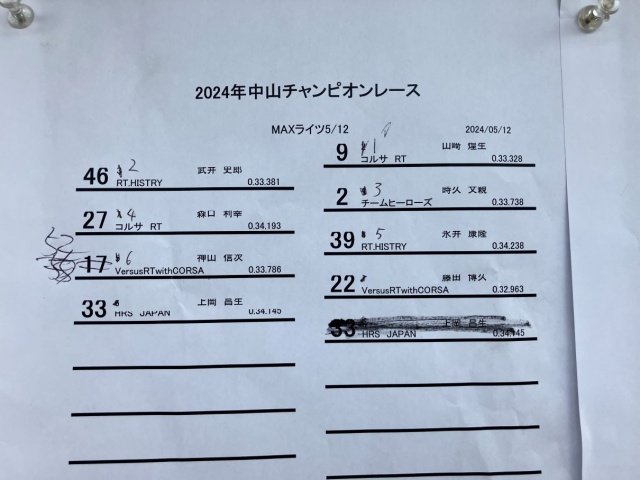 2024年中山チャンピオンレース
MAXライツ5/12
2024/05/12
9 1 山崎 煌生
コルサ RT 0.33.328
46 2 武井 史郎
RT.HISTRY 0.33.381
2 3 時久 文親
チームヒーローズ 0.33.738
27 4 森口 利幸
コルサ RT 0.34.193
39 5 永井 康隆
RT.HISTRY 0.34.238
17 6 神山 信次
VersusRTwithCORSA 0.33.786
22 藤田 博久
VersusRTwithCORSA 0.32.963
33 上岡 昌生
HRS JAPAN 0.34.145
33 上岡 昌生
HRS JAPAN 0.34.145